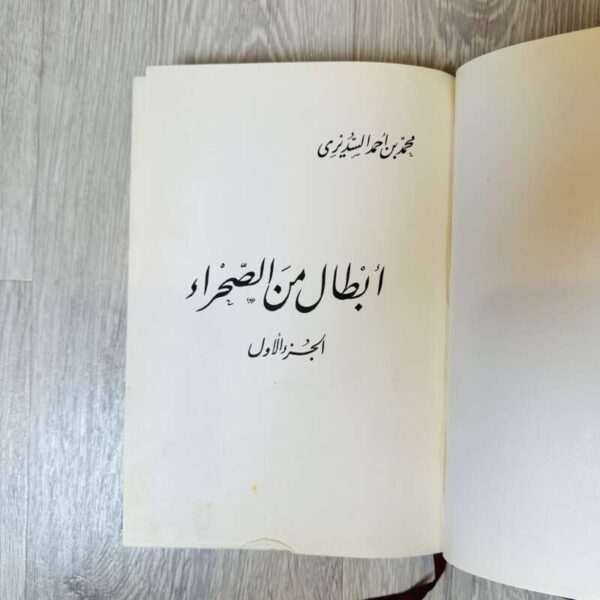 محمّد بن أحمد السّديْري
أبْطال منَ الصّحْراء
الجُزء الأول